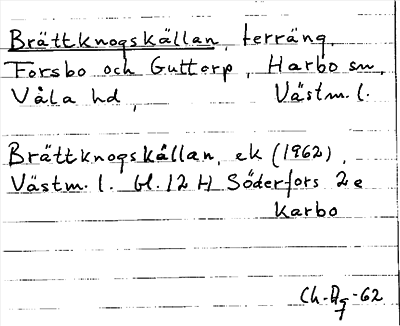 Brättknogskällan, terräng,
Forsbo och Guttorp, Harbo sn,
Våla hd, Västm. l.
Brättknogskällan, ek (1962),
Västm. l. bl. 12 H Söderfors 2 e
Karbo
-62